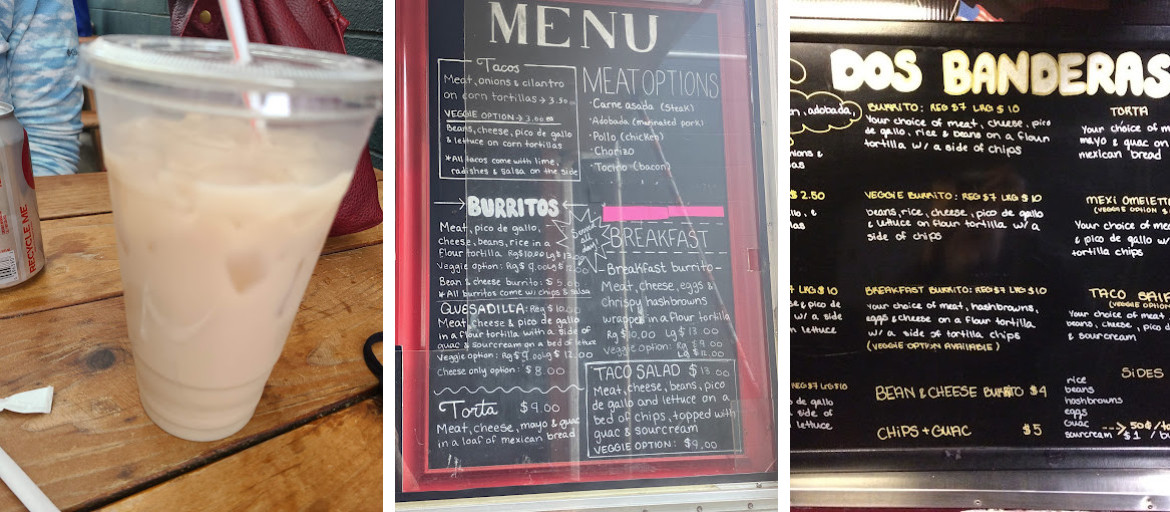 RECYCLE ME
MENU
Tacos
Meat, onions & cilantro
on corn tortillas → 3.50
VEGGIE OPTION → 3.00
Beans, cheese, pico de gallo
& lettuce on corn tortillas
*All tacos come with lime,
radishes & salsa on the side
MEAT OPTIONS
·Carne asada (steak)
·Adobada (marinated pork)
·Pollo (chicken)
·Chorizo
·Tocino (bacon)
BURRITOS
Meat, pico de gallo,
cheese, beans, rice in a
flour tortilla Rg $10.00 Lg $13.00
Veggie option: Rg $9.00 Lg $12.00
Bean & cheese burrito: $5.00
*All burritos come w/ chips & salsa
all day!
BREAKFAST
-Breakfast burrito-
Meat, cheese, eggs &
chrispy hashbrowns
wrapped in a flour tortilla
Rg $10.00 Lg $13.00
veggie option: Rg $9.00
Lg $12.00
QUESADILLA: Reg $10.00
Meat, cheese & pico de gallo
in a flour tortilla with a side of
guac & sourcream on a bed of lettuce
Veggie option: Rg $9.00 Lg $12.00
Cheese only option: $8.00
Torta $9.00
Meat, cheese, mayo & guac
in a loaf of mexican bread
TACO SALAD $13.00
Meat, cheese, beans, pico
de gallo and lettuce on a
bed of chips, topped with
guac & sourcream
VEGGIE OPTION: $9.00
DOS BANDERAS
n, adobada,
nions &
las
$2.50
llo, &
las
LRG $10
& pico de
w/ a side
lettuce
REG $7 LRG $10
de gallo
side of
lettuce
BURRITO: REG $7 LRG $10
Your choice of meat, cheese, pico
de gallo, rice & beans on a flour
tortilla w/ a side of chips
VEGGIE BURRITO: REG $7 LRG $10
beans, rice, cheese, pico de gallo
& lettuce on flour tortilla w/ a
side of chips
BREAKFAST BURRITO: REG $7 LRG $10
Your choice of meat, hashbrowns,
eggs & cheese on a flour tortilla
w/ a side of tortilla chips
(VEGGIE OPTION AVAILABLE)
BEAN & CHEESE BURRITO $4
CHIPS + GUAC $5
TORTA
Your choice of m
mayo & guac on
mexican bread
MEXI OMELETT
(VEGGIE OPTION
Your choice of me
& pico de gallo w/
tortilla chips
TACO SA
(VEGGIE OPTION
Your choice of mea
beans, cheese, pico d
& sourcream
SIDES
rice
beans
hashbrowns
eggs
guac
sourcream --> 50¢/
$1 /